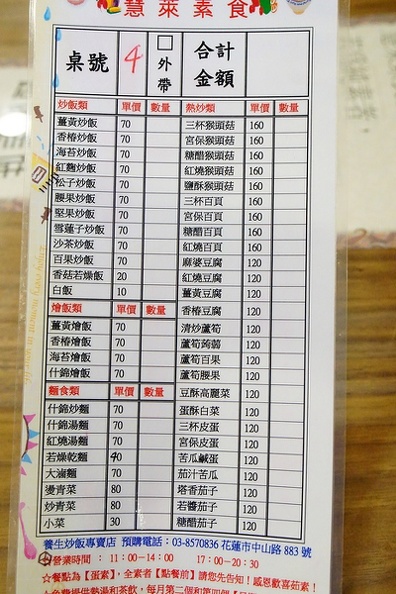 慧萊素食
桌號 4 □外帶 合計金額
炒飯類 單價 數量 熱炒類 單價 數量
薑黃炒飯 70 三杯猴頭菇 160
香椿炒飯 70 宮保猴頭菇 160
海苔炒飯 70 糖醋猴頭菇 160
紅麴炒飯 70 紅燒猴頭菇 160
松子炒飯 70 鹽酥猴頭菇 160
腰果炒飯 70 三杯百頁 160
堅果炒飯 70 宮保百頁 160
雪蓮子炒飯 70 糖醋百頁 160
沙茶炒飯 70 紅燒百頁 160
百果炒飯 70 麻婆豆腐 120
香菇若燥飯 20 紅燒豆腐 120
白飯 10 薑黃豆腐 120
燴飯類 單價 數量 香椿豆腐 120
薑黃燴飯 70 清炒蘆筍 120
香椿燴飯 70 蘆筍蒟蒻 120
海苔燴飯 70 蘆筍百果 120
什錦燴飯 70 蘆筍腰果 120
麵食類 單價 數量 豆酥高麗菜 120
什錦炒麵 70 蛋酥白菜 120
什錦湯麵 70 三杯皮蛋 120
紅燒湯麵 70 宮保皮蛋 120
若燥乾麵 40 苦瓜鹹蛋 120
大滷麵 70 茄汁苦瓜 120
燙青菜 80 塔香茄子 120
炒青菜 80 若醬茄子 120
小菜 30 糖醋茄子 120
養生炒飯專賣店 預購電話:03-8570836 花蓮市中山路 883 號
營業時間 : 11:00-14:00 17:00-20:30
☆餐點為【蛋素】,全素者【點餐前】請您先告知!感恩歡喜茹素!